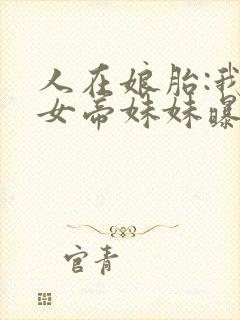 人在娘胎:我
女帝妹妹曝
官青